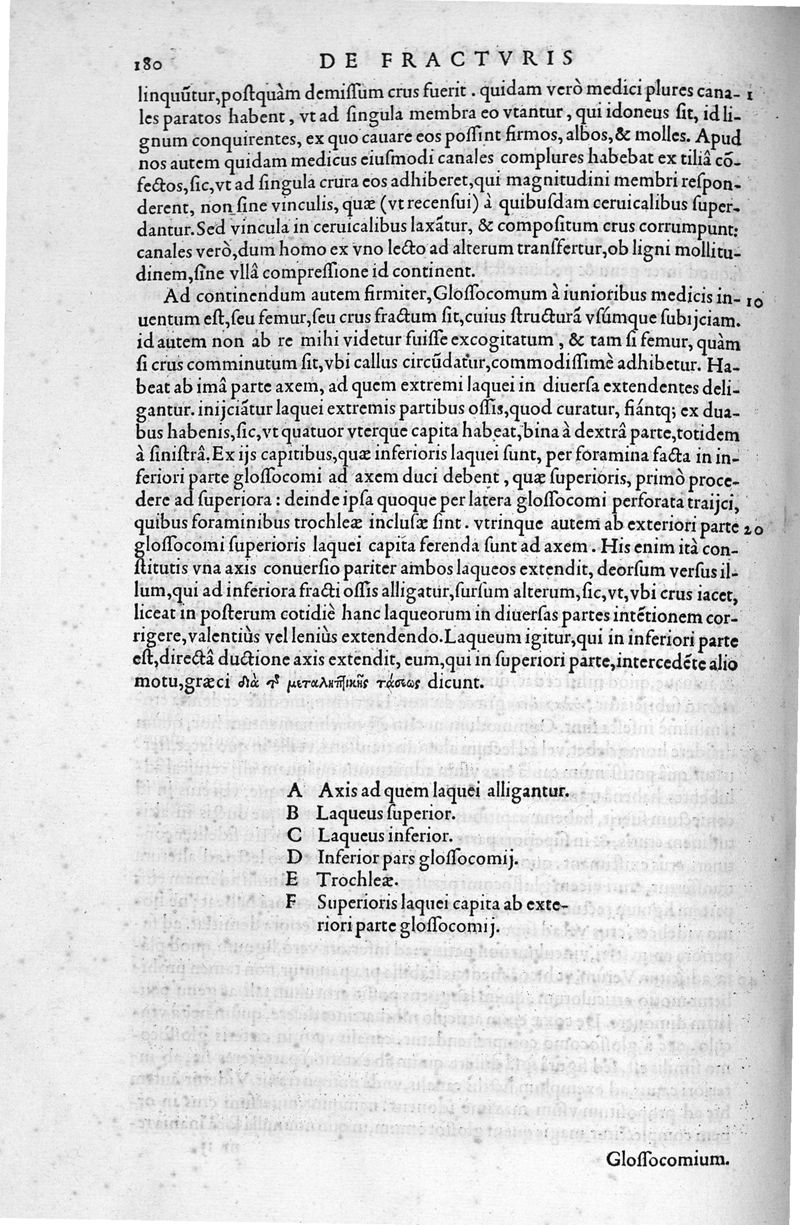 180 DE FRACTVRIS
linquūtur,poſtquàm demiſſum crus fuerit . quidam verò medici plures cana- 1
les paratos habent , vt ad ſingula membra eo vtantur , qui idoneus ſit, id li-
gnum conquirentes, ex quo cauare eos poſſint firmos, albos, & molles. Apud
nos autem quidam medicus eiuſmodi canales complures habebat ex tiliâ cō-
fectos, ſic, vt ad ſingula crura eos adhiberet, qui magnitudini membri reſpon-
derent, non ſine vinculis, quæ (vt recenſui) à quibuſdam ceruicalibus ſuper-
dantur. Sed vincula in ceruicalibus laxātur, & compoſitum crus corrumpunt:
canales verò, dum homo ex vno lecto ad alterum transfertur, ob ligni mollitu-
dinem, ſine vllâ compreſſione id continent.
Ad continendum autem firmiter, Gloſſocomum à iunioribus medicis in- 10
uentum eſt, ſeu femur, ſeu crus fractum ſit, cuius ſtructurā vſúmque ſubijciam.
id autem non ab re mihi videtur fuiſſe excogitatum , & tam ſi femur, quàm
ſi crus comminutum ſit, vbi callus circūdatur, commodiſſimè adhibetur. Ha-
beat ab imâ parte axem, ad quem extremi laquei in diuerſa extendentes deli-
gantur. inijciātur laquei extremis partibus oſſis, quod curatur, fiántq; ex dua-
bus habenis, ſic, vt quatuor vterque capita habeat, bina à dextrâ parte, totidem
à ſiniſtrâ. Ex ijs capitibus, quæ inferioris laquei ſunt, per foramina facta in in-
feriori parte gloſſocomi ad axem duci debent , quæ ſuperioris, primò proce-
dere ad ſuperiora : deinde ipſa quoque per latera gloſſocomi perforata traijci,
quibus foraminibus trochleæ incluſæ ſint . vtrinque autem ab exteriori parte 20
gloſſocomi ſuperioris laquei capita ferenda ſunt ad axem . His enim ità con-
ſtitutis vna axis conuerſio pariter ambos laqueos extendit, deorſum verſus il-
lum, qui ad inferiora fracti oſſis alligatur, ſurſum alterum, ſic, vt, vbi crus iacet,
liceat in poſterum cotidiè hanc laqueorum in diuerſas partes intētionem cor-
rigere, valentiùs vel leniùs extendendo. Laqueum igitur, qui in inferiori parte
eſt, directâ ductione axis extendit, eum, qui in ſuperiori parte, intercedēte alio
motu, græci διὰ τ μεταληπτικῆς τάσεως dicunt.
A Axis ad quem laquei alligantur.
B Laqueus ſuperior.
C Laqueus inferior.
D Inferior pars gloſſocomij.
E Trochleæ.
F Superioris laquei capita ab exte-
riori parte gloſſocomij.
Gloſſocomium.